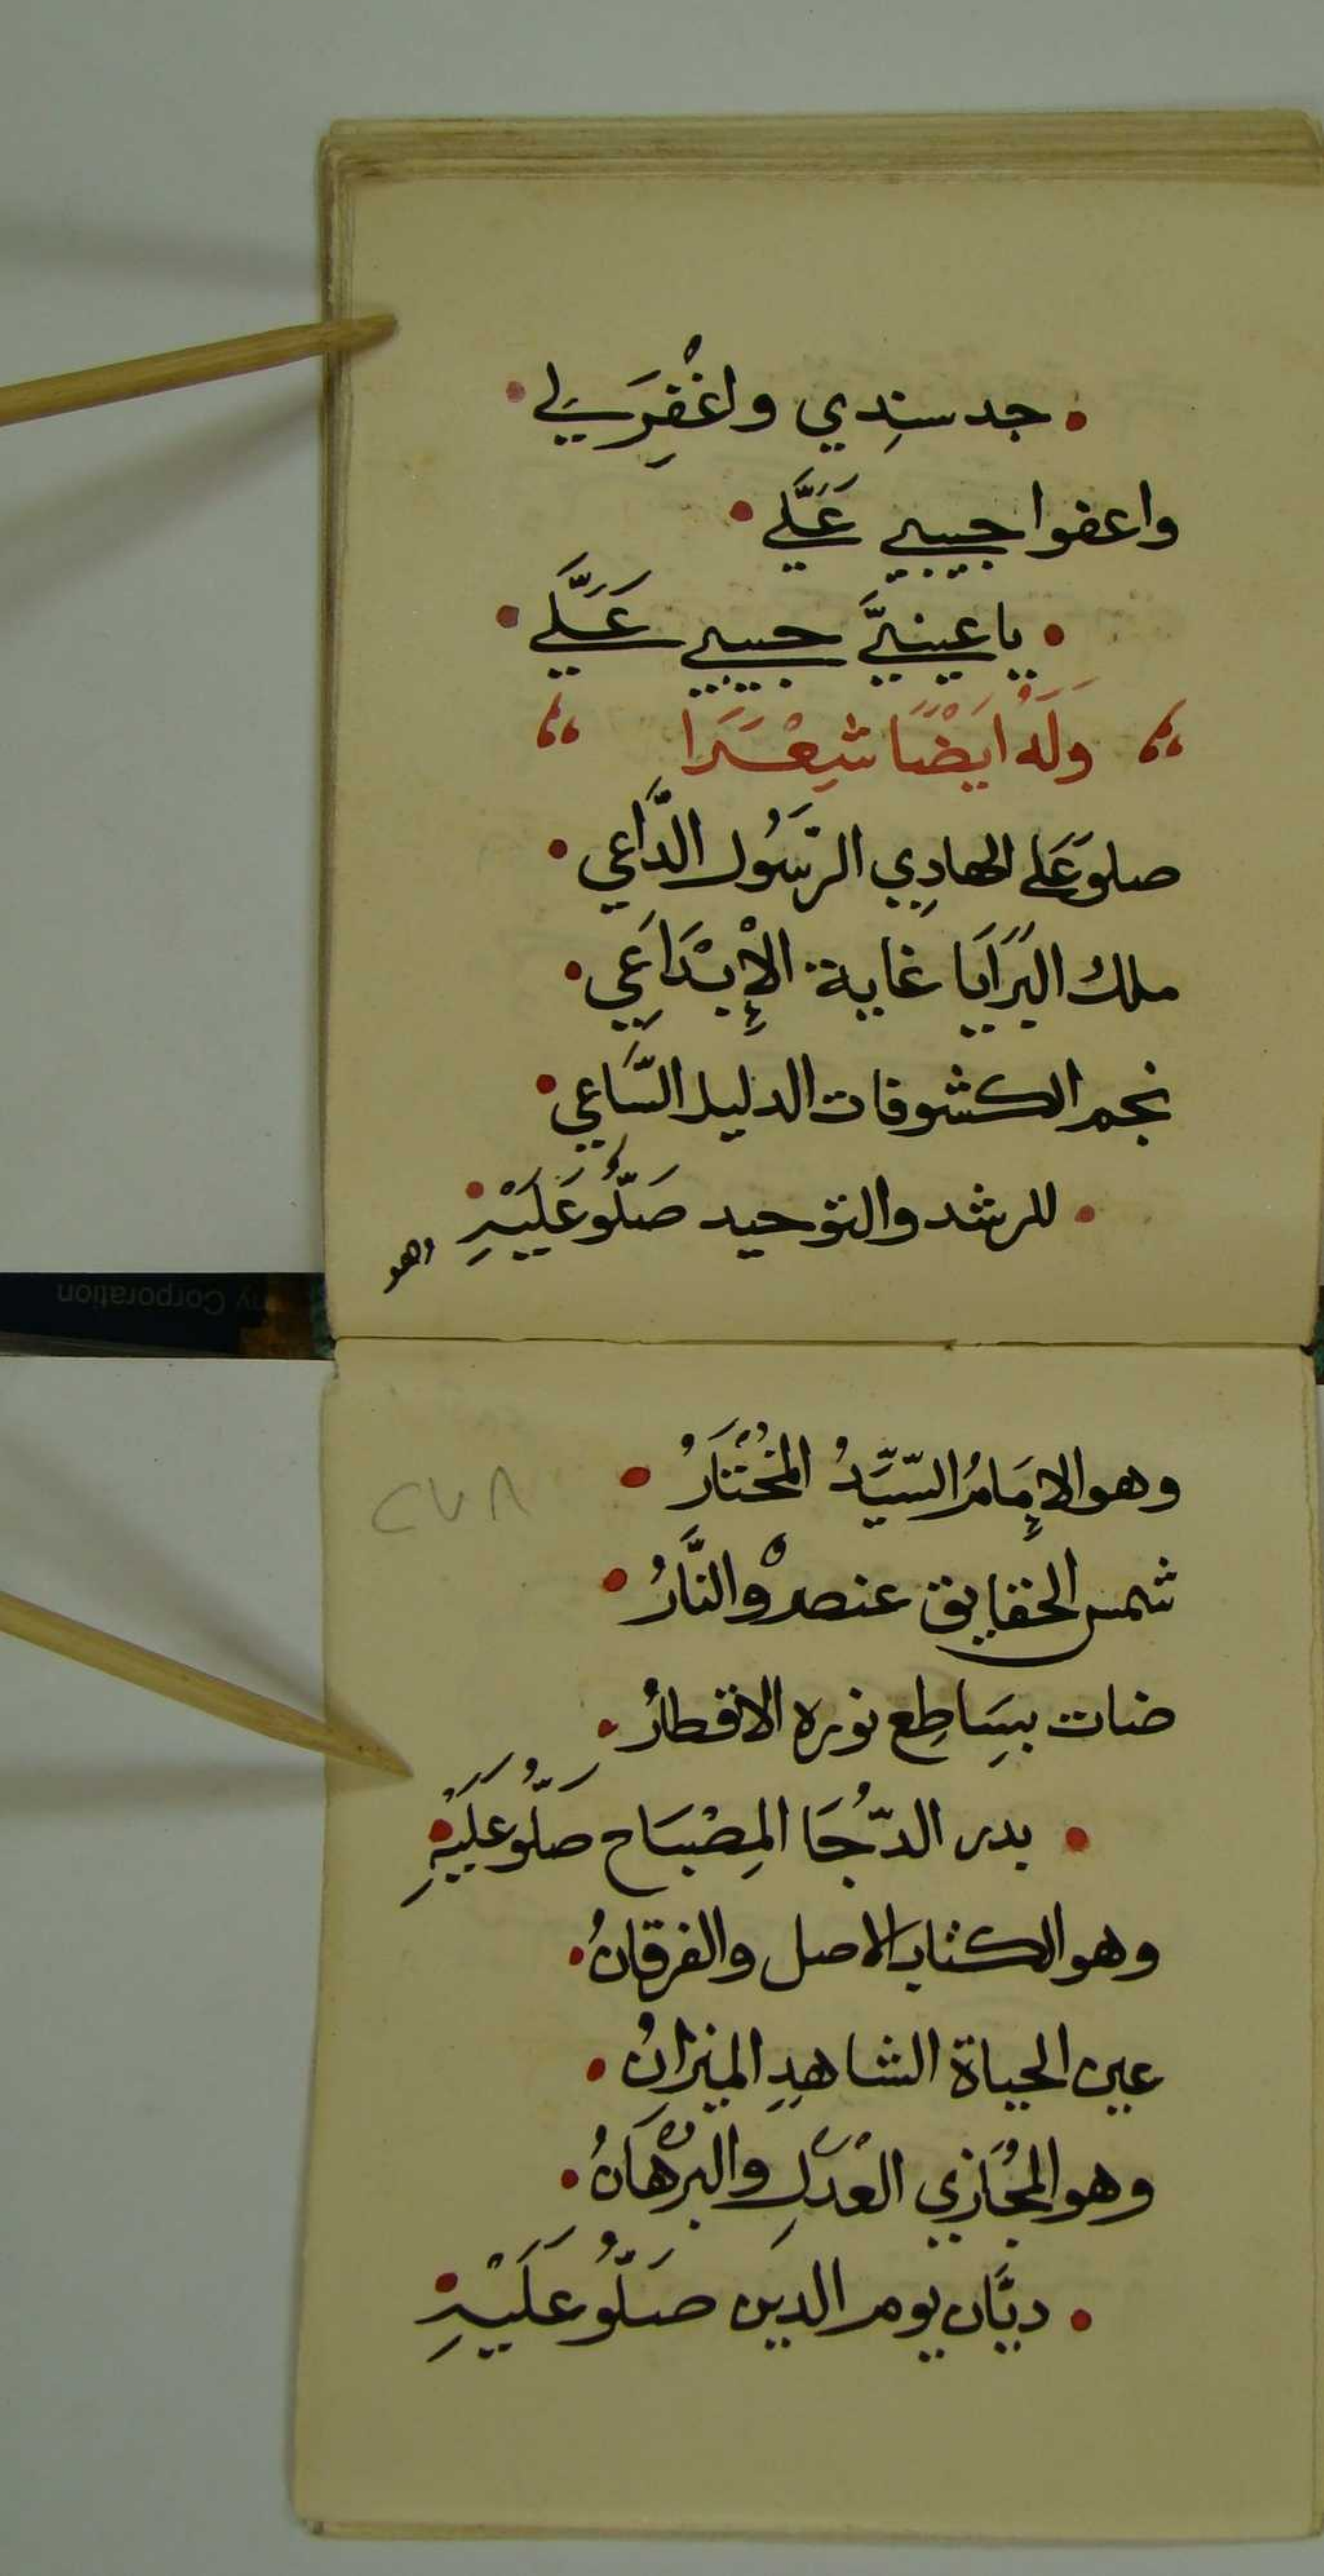 • جد سندي واغْفِرَ لي •
واعفوا حبيبي عَلَّي •
• يا عينيَّ حبيبي عَلَّي •
وَلَهُ ايَضًْا شِعْرًا
صلو عَلى الهادِي الرّسَُول الدَّاعي •
ملك البَرَايَا غاية الإْبْدَاعِي •
نجم الكشوفات الدليل السَّاعي •
• للرشد والتوحيد صَلُّو عَلَيْهِ •
وهو
وهو الإمَامُ السّيَِّدُ المُخْتَارُ •
٢٧٨
شمس الحقايق عنصرْ والنَّارُ •
ضات بِسَاطِع نوره الاقطارُ •
• بدر الدُّجَا المِصْبَاح صَلُّو عَلَيْهِ •
وهو الكتاب الاصل والفرقانُ •
عين الحياة الشاهِدِ الميزانُ •
وهو المُجَازي العْدَلِ والبُرْهَانُ •
• ديَّان يوم الدين صَلُّو عَلَيْهِ •
ny Corporation